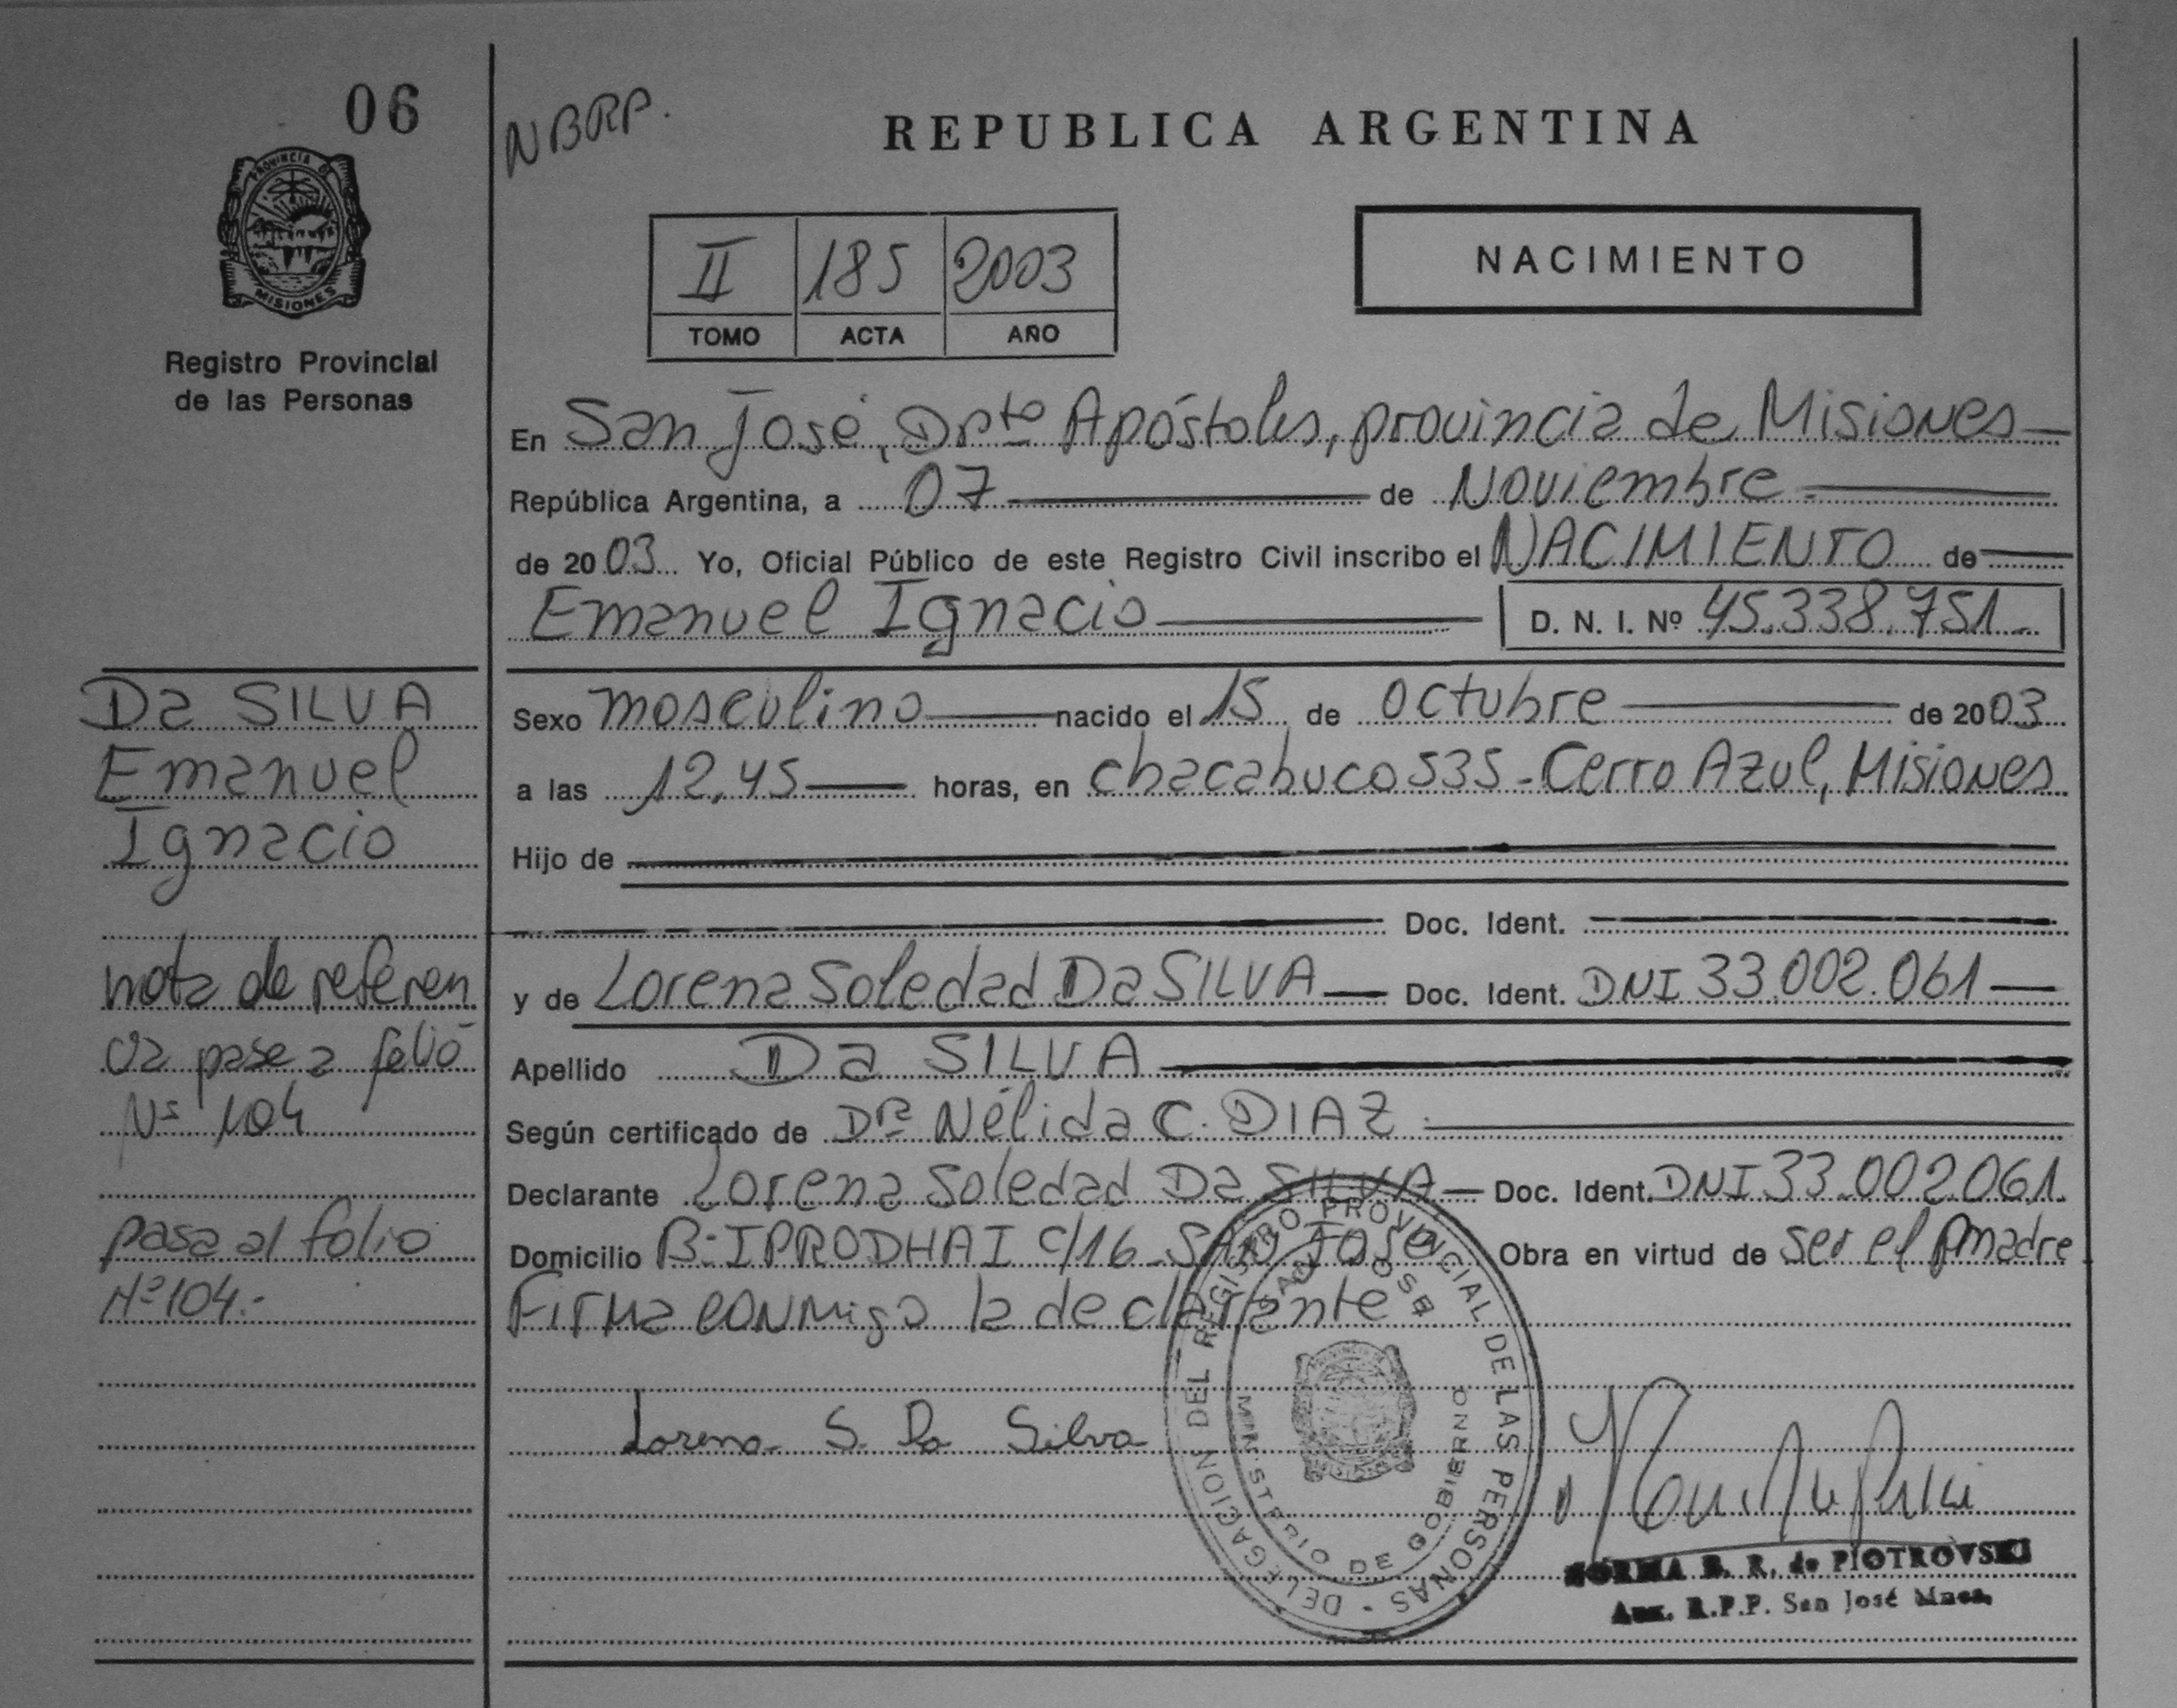 06
NBRP.
REPUBLICA ARGENTINA
PROVINCIA DE
MISIONES
Registro Provincial
de las Personas
II 185 2003
TOMO ACTA AÑO
NACIMIENTO
En San José, Dpto Apóstoles, provincia de Misiones
República Argentina, a 07 de Noviembre
de 2003 Yo, Oficial Público de este Registro Civil inscribo el NACIMIENTO de
Emanuel Ignacio D. N. I. Nº 45.338.751
Da SILVA
Emanuel
Ignacio
nota de referen
cia pase a folio
Nº 104
pasa al folio
Nº 104.-
Sexo masculino nacido el 15 de octubre de 2003
a las 12,45 horas, en chacabuco 535 - Cerro Azul, Misiones
Hijo de
Doc. Ident.
y de Lorena Soledad Da SILVA Doc. Ident. DNI 33.002.061
Apellido Da SILVA
Según certificado de Dra Nélida C. DIAZ
Declarante Lorena Soledad Da SILVA Doc. Ident. DNI 33.002.061.
Domicilio Bº IPRODHAI c/16 San José Obra en virtud de ser el madre
Firma conmigo la declarante
Lorena S. Da Silva
DELEGACION DEL REGISTRO PROVINCIAL DE LAS PERSONAS -
SAN JOSE
MINISTERIO DE GOBIERNO
NORMA B. R. de PIOTROVSKI
Aux. R.P.P. San José Mnes.